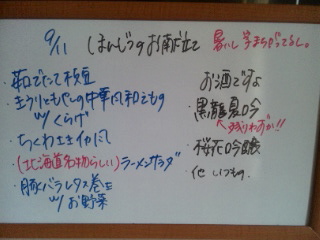 9/11 ほんじつのお献立て
暑いし
・茹でたて枝豆
・きうりともやしの中華風和えもの
w/ くらげ
・ちくわ
・(北海道名物らしい)ラーメンサラダ
・豚バラレタス巻き
w/ お野菜
お酒ですよ
・黒龍 夏吟
↑残りわずか!!
・桜花吟醸
・他 いつもの。